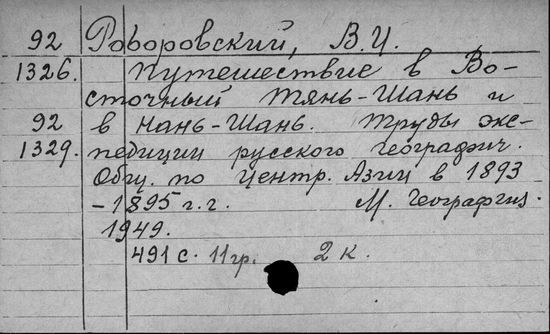 92 Роборовский, В.И.
1326. Путешествие в Во-
сточный Тянь-Шань и
92 в Нань-Шань. Труды экс-
1329. педиции русского географич.
Общ. по Центр. Азии в 1893
-1895 г.г. М. Географгиз.
1949.
491 с. 11 гр. 2 к.